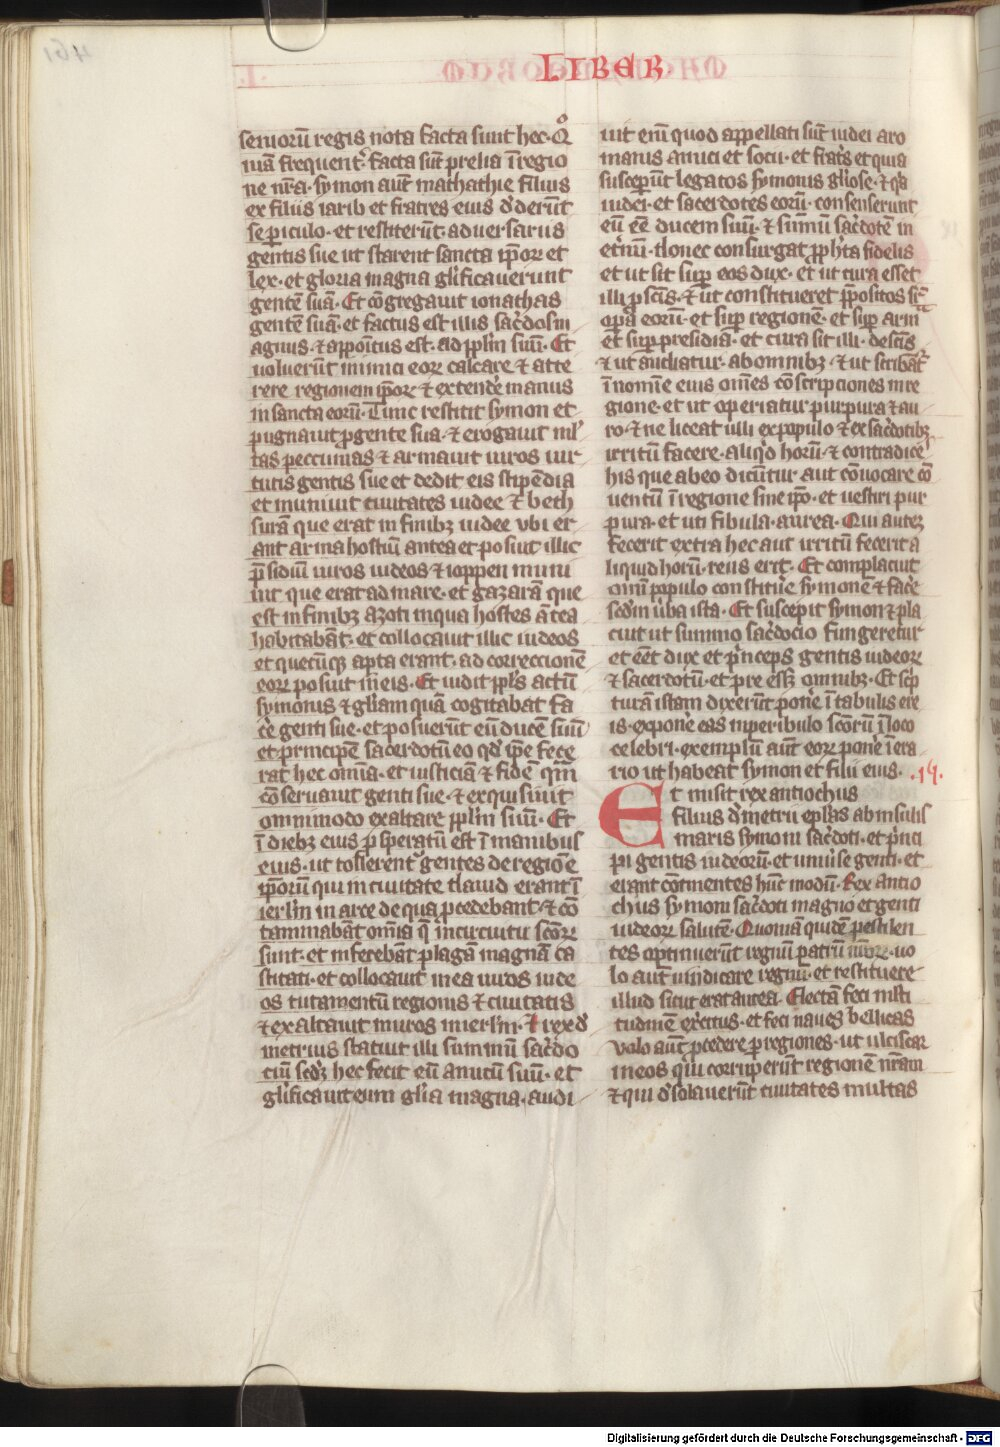 LIBER
seniorū regis nota facta sunt hec· Qͦ
niā frequent᷑ facta sūt prelia ī regio
ne nr̄a· symon aūt mathathie filius
ex filiis iarib et fratres eius d'derūt
se ꝑiculo· et restiterūt· aduersariis
gentis sue ut starent sancta ip̄oꝝ et
lex· et gloria magna gl'ificauerunt
gentē suā· Et cōgregauit ionathas
gentē suā· et factus est illis sac'dos m
agnus· ⁊ appoītus est· ad ppl̄m suū· Et
uoluerūt inimici eoꝝ calcare ⁊ atte
rere regionem ip̄oꝝ ⁊ extend'e manus
in sancta eorū· Tunc restitit symon et
pugnauit ꝓ gente sua· ⁊ erogauit ml'
tas peccunias ⁊ armauit uiros uir
tutis gentis sue et dedit eis stipēdia
et muniuit ciuitates iudee ⁊ beth
surā que erat in finibꝫ iudee vbi er
ant arma hostiū antea et posuit illic
p̄sidiū uiros iudeos ⁊ ioppen muni
uit que erat ad mare· et gazarā que
est in finibꝫ azoti in qua hostes ātea
habitabāt· et collocauit illic iudeos
et quecūqꝫ apta erant· ad correccionē
eoꝝ posuit in eis· Et uidit ppl's actū
symonis ⁊ gl'iam quā cogitabat fa
c'e genti sue· et posuerūt eū ducē suū
et principē sacerdotū eo qd' ip̄e fece
rat hec om̄ia· et iusticiā ⁊ fidē qm̄
cōseruauit genti sue· ⁊ exquisiuit
omnimodo exaltare ppl'm suū· Et
ī diebꝫ eius ꝓsperatū est ī manibus
eius· ut tollerent᷑ gentes de regiōe
ip̄orū qui in ciuitate dauid erant ī
ierl'm in arce de qua ꝓcedebant· ⁊ cō
taminabāt om̄ia q̄ in circuitu scōꝝ
sunt· et inferebāt plagā magnā ca
stitati· et collocauit in ea uiros iude
os tutamentū regionis ⁊ ciuitatis
⁊ exaltauit muros in ierl'm· Et rex d'
metrius statuit illi summū sac'do
ciū scd'ꝫ hec fecit eū amicū suū· et
gl'ificauit eum gl'ia magna· audi
uit enī quod appellati sūt iudei a ro
manis amici et socii· et frat's et quia
suscepūt legatos symonis gl'iose· ⁊ qa
iudei· et sacerdotes eorū· consenserunt
eū eē ducem suū· ⁊ sūmū sac'dotē in
et'nū· donec consurgat ꝓph'ta fidelis
et ut sit suꝑ eos dux· et ut cura esset
illi ꝓ scīs· ⁊ ut constitueret p̄positos sup̄
opa eorū· et suꝑ regionē· et suꝑ arma
et suꝑ presidia· et cura sit illi· de scīs
⁊ ut audiatur· ab omnibꝫ· ⁊ ut scribāt᷑
ī nomīe eius om̄es cōscripciones in re
gione· et ut operiatur purpura ⁊ au
ro· ⁊ ne liceat ulli ex populo ⁊ ex sac'dotibꝫ
irritū facere· aliq'd horū· ⁊ contradic'e
his que ab eo dicūtur aut cōuocare cō
uentū ī regione sine ip̄o· et uestiri pur
pura· et uti fibula· aurea· Qui auteꝫ
fecerit extra hec aut irritū fecerit a
liquid horū· reus erit· Et complacuit
omī populo constitu'e symonē ⁊ fac'e
scd'm u'ba ista· Et suscepit symon ⁊ pla
cuit ut summo sac'docio fungeretur
et eēt dux et p'nceps gentis iudeoꝝ
⁊ sacerdotū· et pre essꝫ omnibꝫ· Et sc'p
turā istam dixerūt pon'e ī tabulis ere
is· ⁊ expon'e eas in peribulo scōrū ī loco
celebri· exemplū aūt eoꝝ pon'e ī era
rio ut habeat symon et filii eius· ·15·
Et misit rex antiochus
filius d'metrii epl'as ab insulis
maris symoni sac'doti· et p'nci
pi gentis iudeorū· et uniu'se genti· et
erant cōtinentes hūc modū· Rex antio
chus symoni sac'doti magno et genti
iudeoꝝ salutē· Quoniā quidē pestilen
tes optinuerūt regnū patrū nr̄oꝝ· uo
lo aūt uindicare regnū· et restituere
illud sicut erat antea· Electā feci mlti
tudinē ex'citus· et feci naueꝫ bellicas
volo aūt ꝓcedere ꝑ regiones· ut ulciscar
in eos qui corruperūt regionē nr̄am
⁊ qui d'solauerūt ciuitates multas
Digitalisierung gefördert durch die Deutsche Forschungsgemeinschaft - DFG